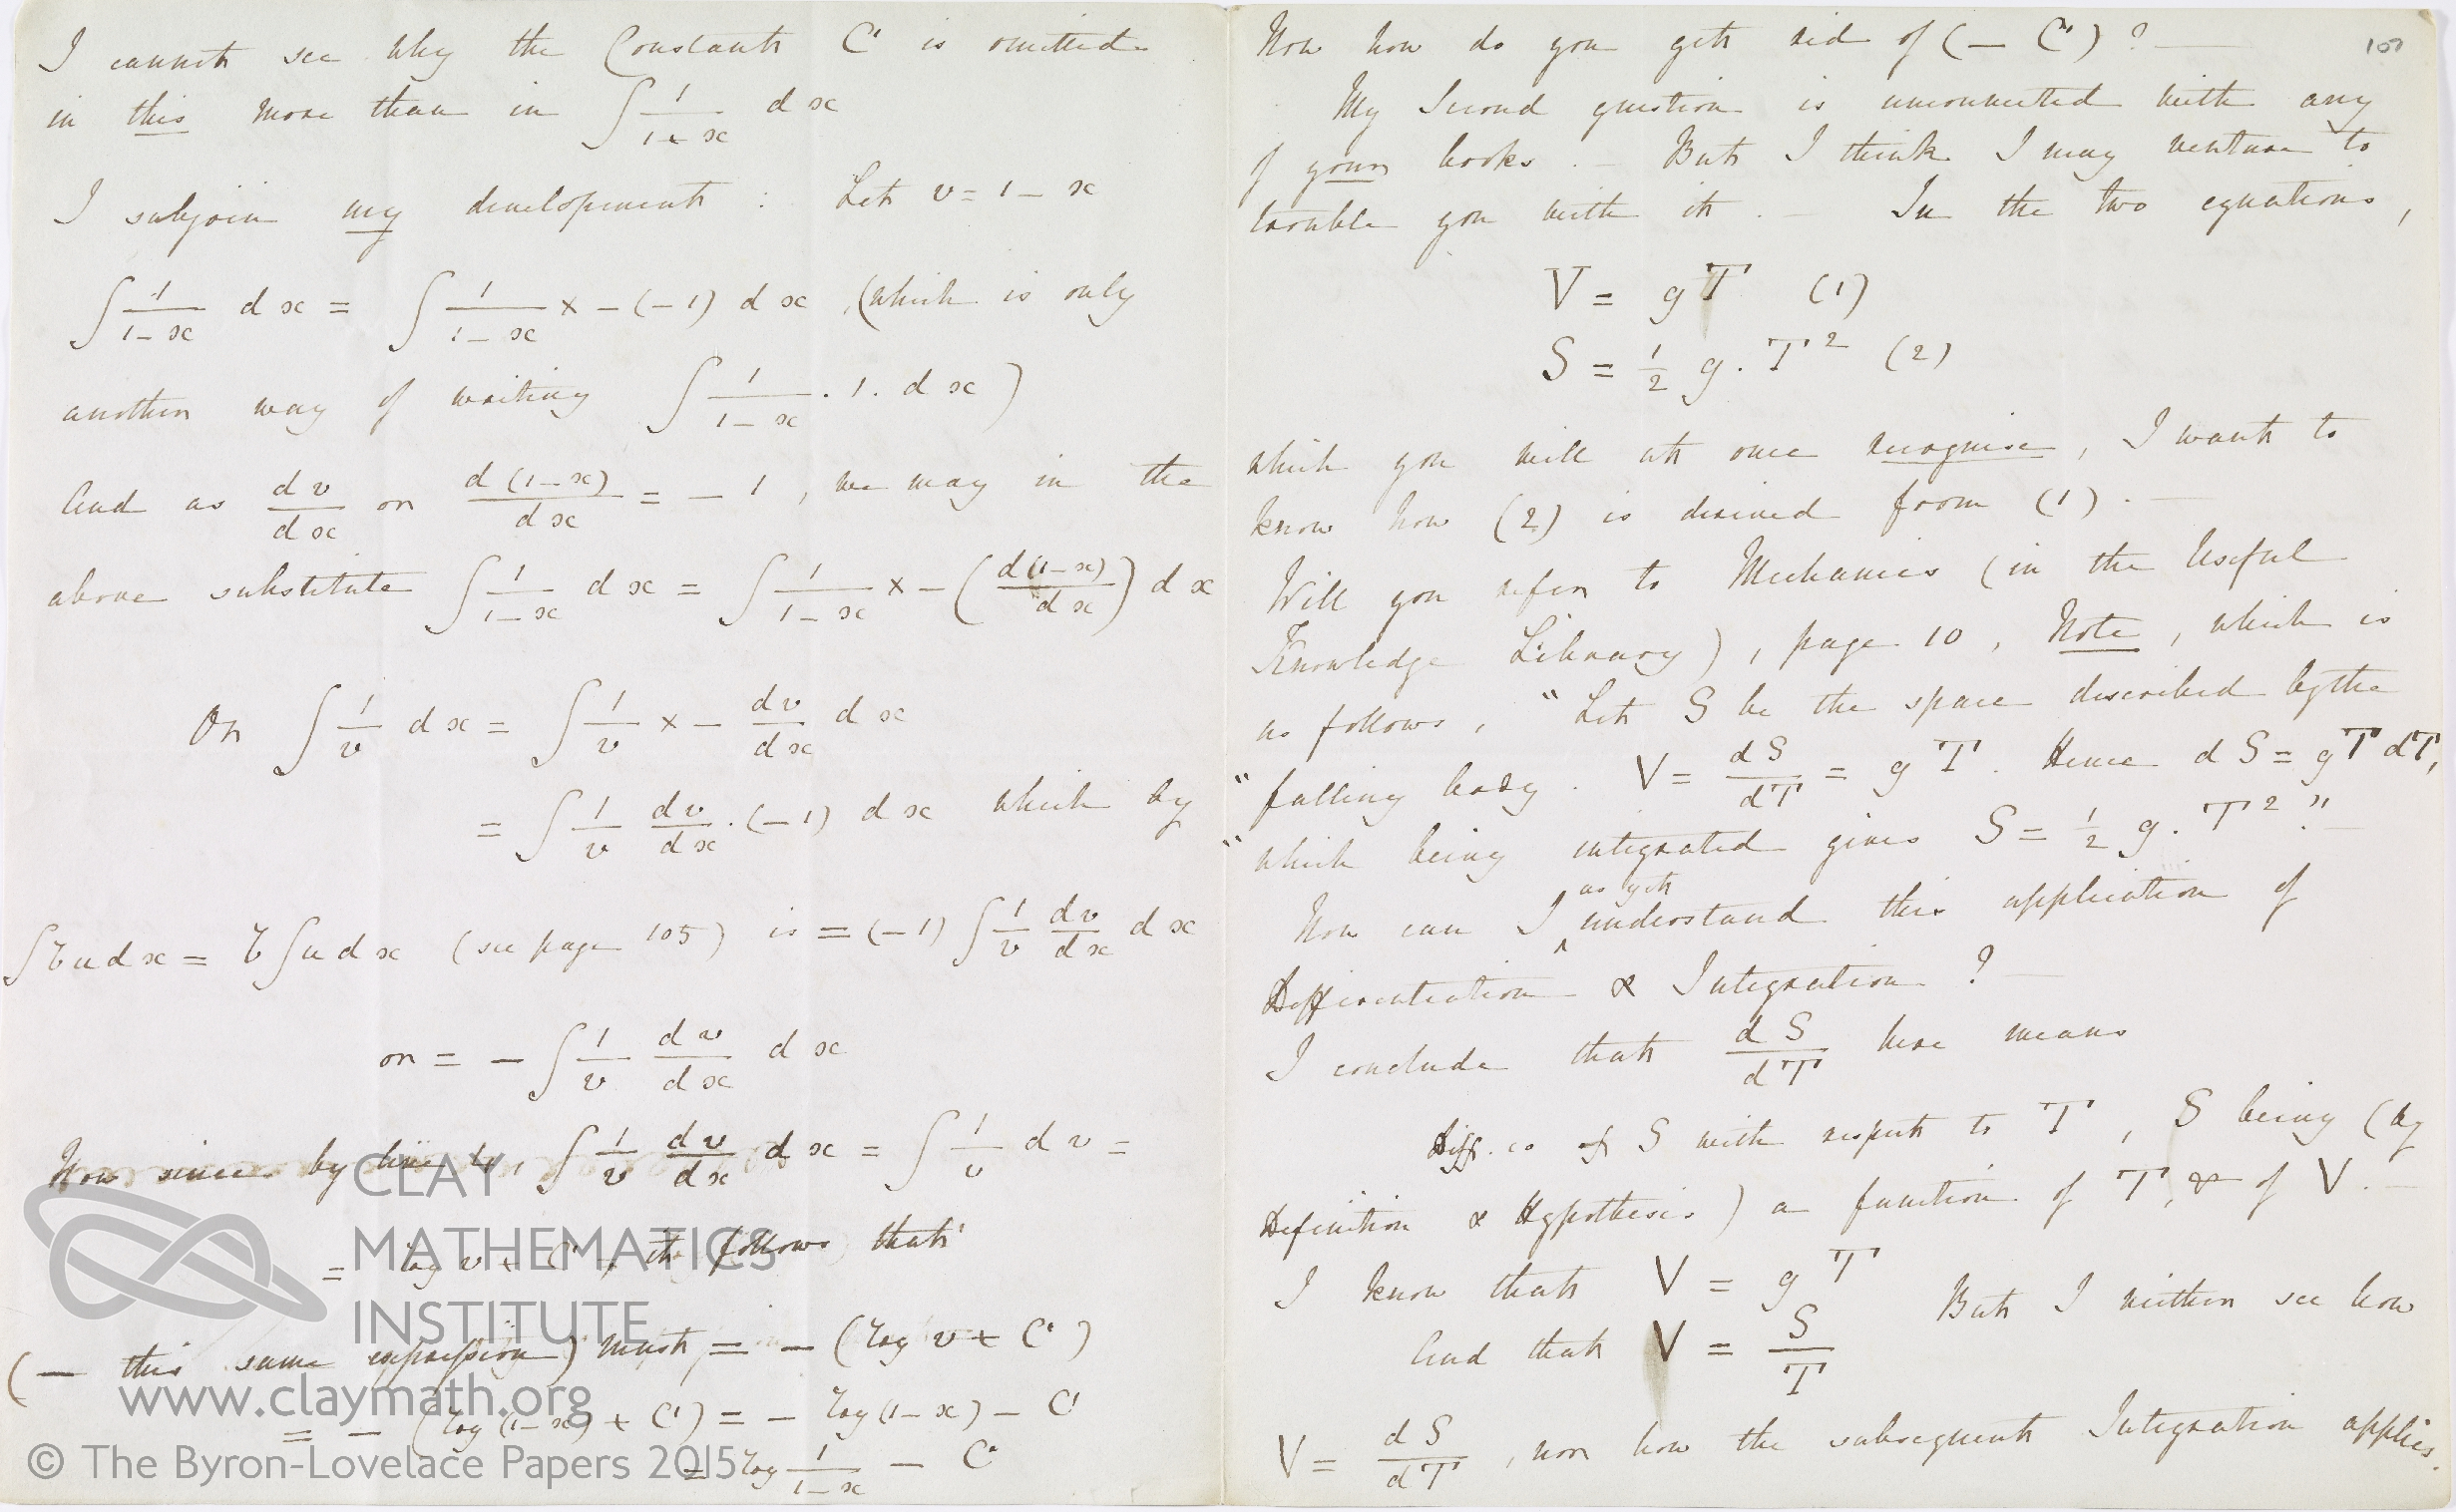 I cannot see why the Constant C is omitted
in this more than in ∫ 1/(1+x) dx
I subjoin my development : Let v = 1 – x
∫ 1/(1–x) dx = ∫ 1/(1–x) × –(–1) dx , (which is only
another way of writing ∫ 1/(1–x) . 1 . dx )
And as dv/dx or d(1–x)/dx = – 1 , we may in the
above substitute ∫ 1/(1–x) dx = ∫ 1/(1–x) × – (d(1–x)/dx) dx
Or ∫ 1/v dx = ∫ 1/v × – dv/dx dx
= ∫ 1/v dv/dx . (–1) dx which by
∫ b u dx = b ∫ u dx (see page 105) is = (–1) ∫ 1/v dv/dx dx
or = – ∫ 1/v dv/dx dx
Now since by line 4, ∫ 1/v dv/dx dx = ∫ 1/v dv =
= log v + C , it follows that
(– this same expression) must = – (log v + C)
= – (log (1–x) + C) = – log (1–x) – C
= log 1/(1–x) – C
CLAY
MATHEMATICS
INSTITUTE
www.claymath.org
© The Byron-Lovelace Papers 2015
107
Now how do you get rid of (– C) ? —
My Second question is unconnected with any
of your books . – But I think I may venture to
trouble you with it . – In the two equations,
V = gT (1)
S = 1/2 g . T² (2)
which you will at once recognise, I want to
know how (2) is derived from (1) . —
Will you refer to Mechanics (in the Useful
Knowledge Library), page 10, Note, which is
as follows, " Let S be the space described by the
" falling body . V = dS/dT = gT . Hence dS = gT dT,
" which being integrated gives S = 1/2 g . T² " . —
Now can I ^ as yet understand this application of
Differentiation & Integration ? —
I conclude that dS/dT here means
Diff. co of S with respect to T , S being (by
Definition & Hypothesis) a function of T, & of V . —
I know that V = gT
And that V = S/T But I neither see how
V = dS/dT , nor how the subsequent Integration applies.